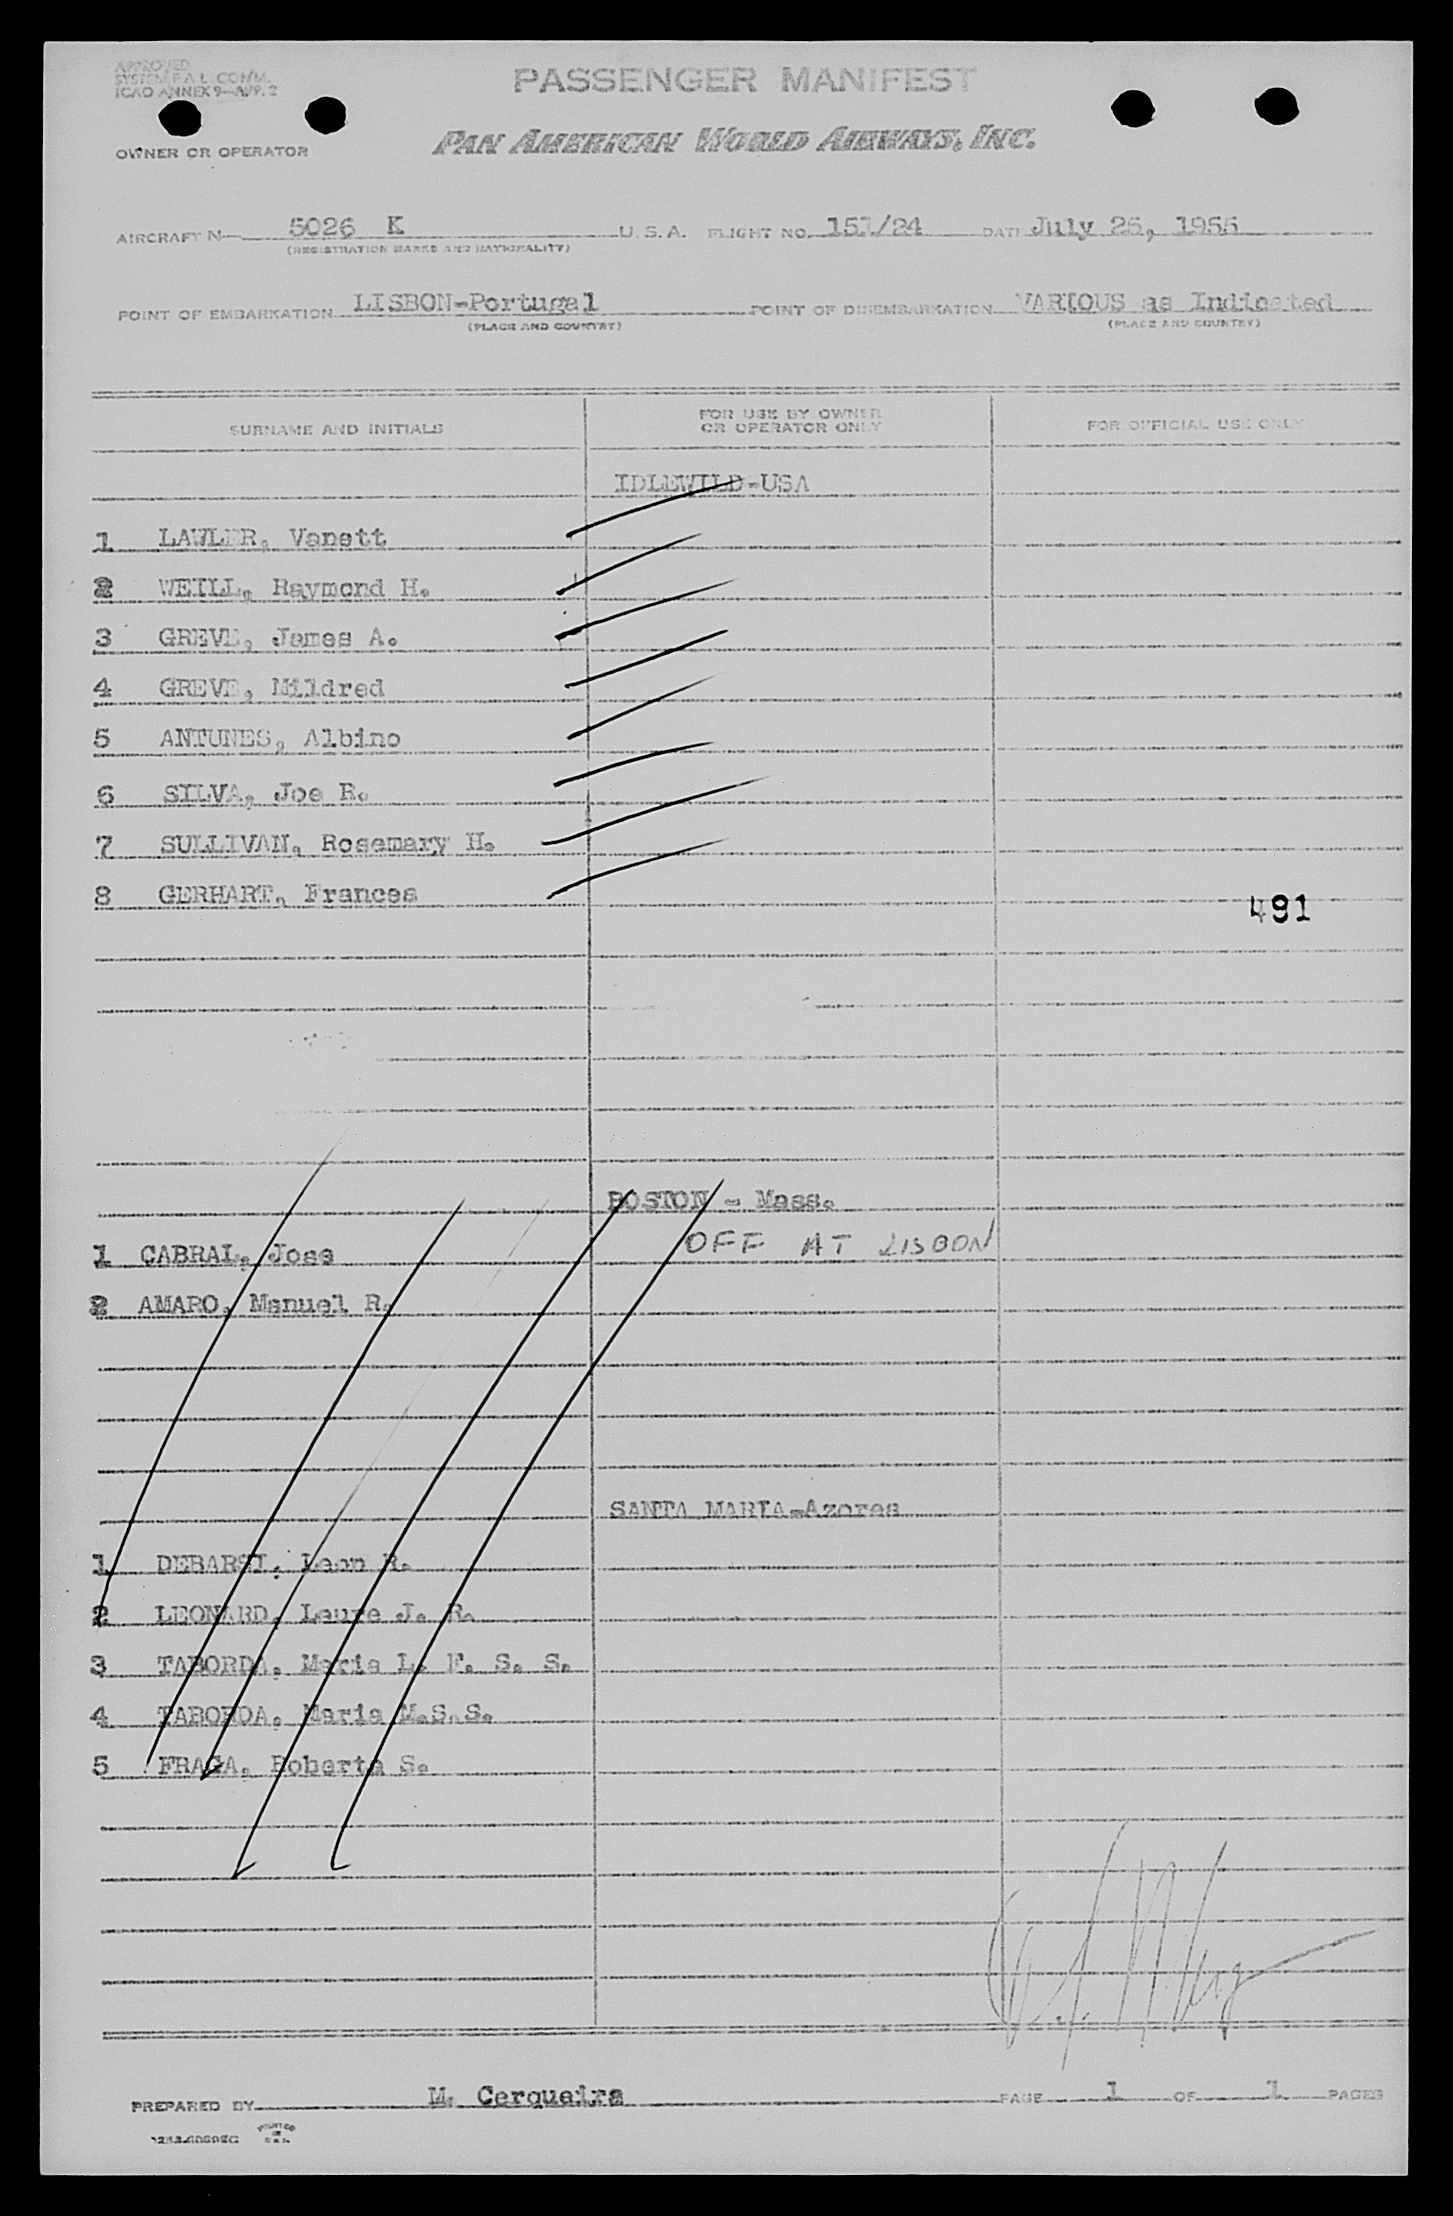 APPROVED
SYSTEM F.A.L. COMM.
ICAO ANNEX 9—APP. 2
PASSENGER MANIFEST
PAN AMERICAN WORLD AIRWAYS, INC.
OWNER OR OPERATOR
AIRCRAFT N— 5026 K U. S. A. FLIGHT NO. 151/24 DATE July 25, 1955
(REGISTRATION MARKS AND NATIONALITY)
POINT OF EMBARKATION LISBON-Portugal POINT OF DISEMBARKATION VARIOUS as Indicated
(PLACE AND COUNTRY) (PLACE AND COUNTRY)
SURNAME AND INITIALS FOR USE BY OWNER OR OPERATOR ONLY FOR OFFICIAL USE ONLY
IDLEWILD-USA
1 LAWLER, Vanett
2 WEILL, Raymond H.
3 GREVE, James A.
4 GREVE, Mildred
5 ANTUNES, Albino
6 SILVA, Joe R.
7 SULLIVAN, Rosemary H.
8 GERHART, Frances
491
BOSTON - Mass.
1 CABRAL, Jose OFF AT LISBON
2 AMARO, Manuel R.
SANTA MARIA-Azores
1 DEBARSI, Leon R.
2 LEONARD, Laure J. R.
3 TABORDA, Maria L. F. S. S.
4 TABORDA, Maria M.S.S.
5 FRAGA, Roberta S.
PREPARED BY M. Cerqueira PAGE 1 OF 1 PAGES